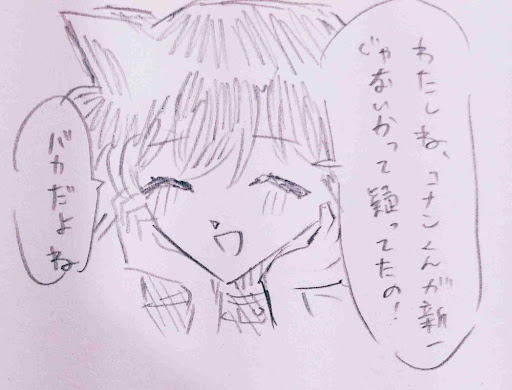 わたしね、コナンくんが新一
じゃないかって疑ってたの！
バカだよね